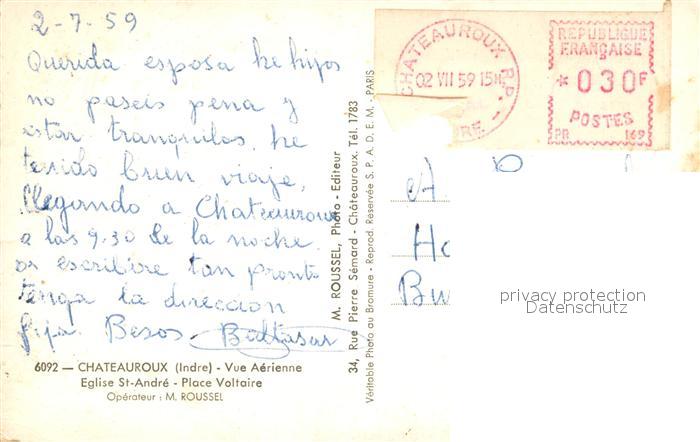 2-7-59
Querida esposa he hijos
no paseis pena y
estar tranquilos, he
tenido buen viaje,
llegando a Chateauroux
a las 9.30 de la noche.
os escribire tan pronto
tenga la direccion
fija. Besos Baltasar
6092 — CHATEAUROUX (Indre) - Vue Aérienne
Eglise St-André - Place Voltaire
Opérateur : M. ROUSSEL
M. ROUSSEL, Photo - Editeur
34, Rue Pierre Sémard - Châteauroux. Tél. 1783
Véritable Photo au Bromure - Reprod. Reservée S. P. A. D. E. M. - PARIS
CHATEAUROUX R.P.
02 VII 59 15H
REPUBLIQUE
FRANÇAISE
* 030F
POSTES
PR 169
A
Ha
Bu
privacy protection
Datenschutz